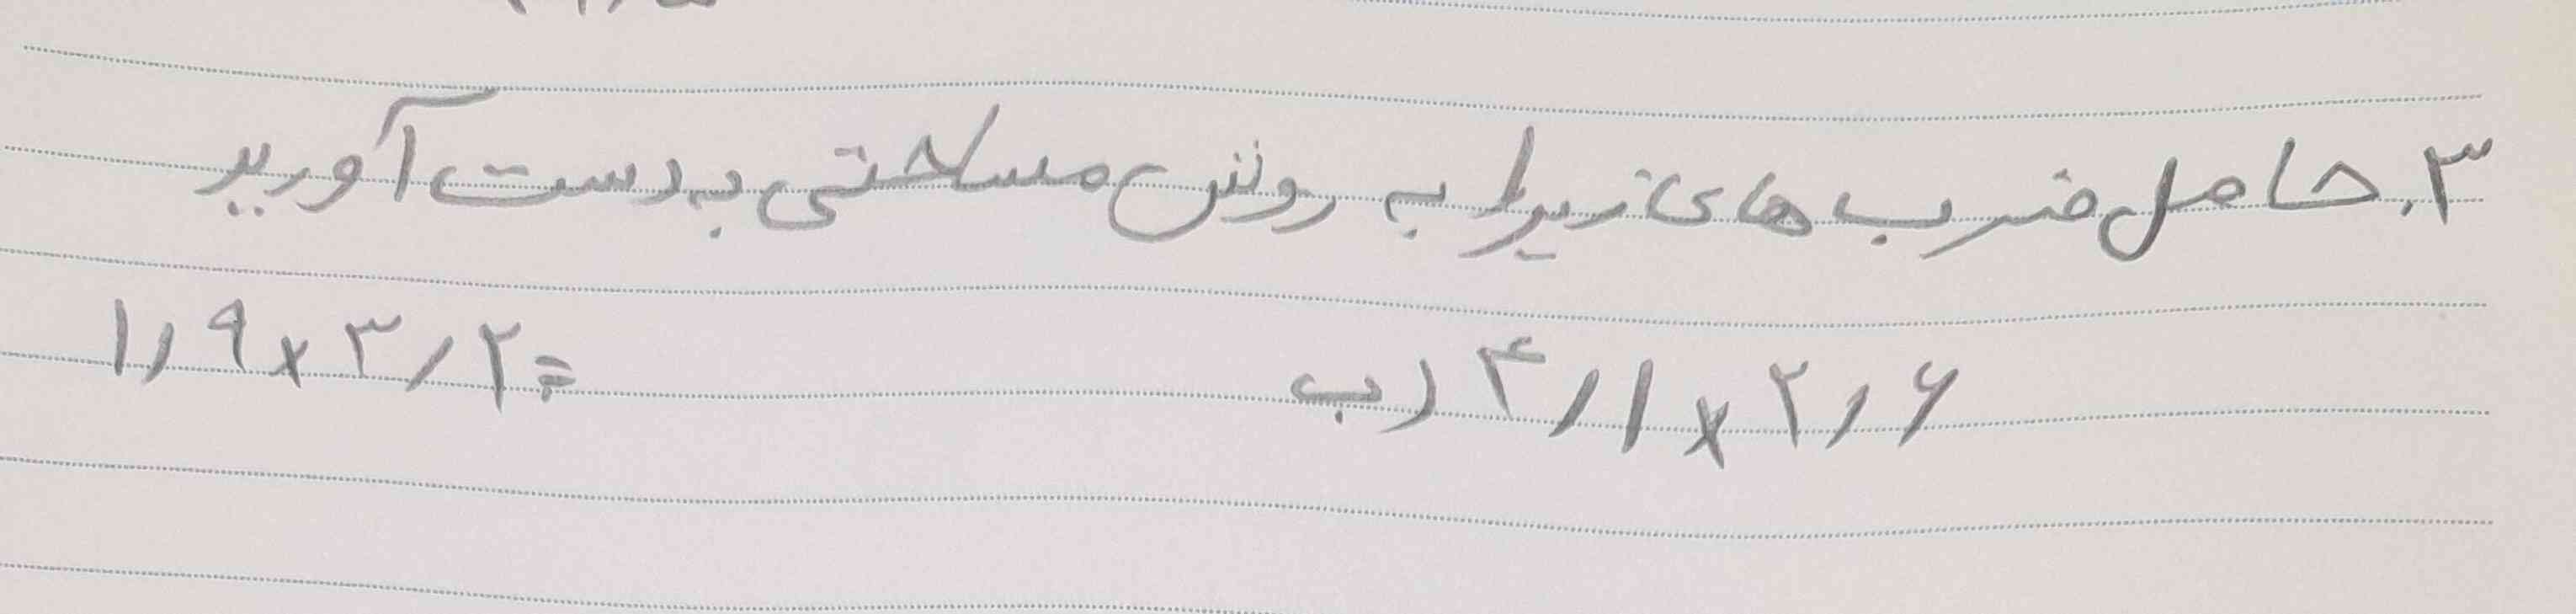 ۳. حاصل ضرب های زیر را به روش مساحتی به دست آورید
۱٫۹ × ۳٫۲ = ب) ۴٫۱ × ۲٫۶